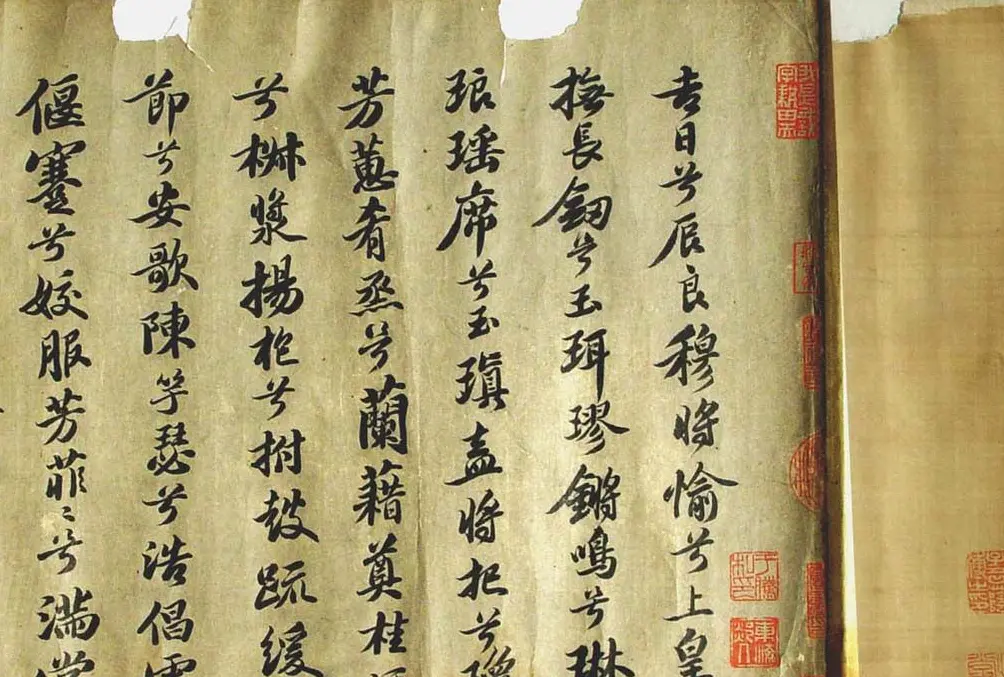 吉日兮辰良穆將愉兮上皇
撫長釼兮玉珥璆鏘鳴兮琳
琅瑶席兮玉瑱盍將把兮
芳蕙肴烝兮蘭藉奠桂
兮椒漿揚枹兮拊鼓疏緩
節兮安歌陳竽瑟兮浩倡
偃蹇兮姣服芳菲〻兮滿堂